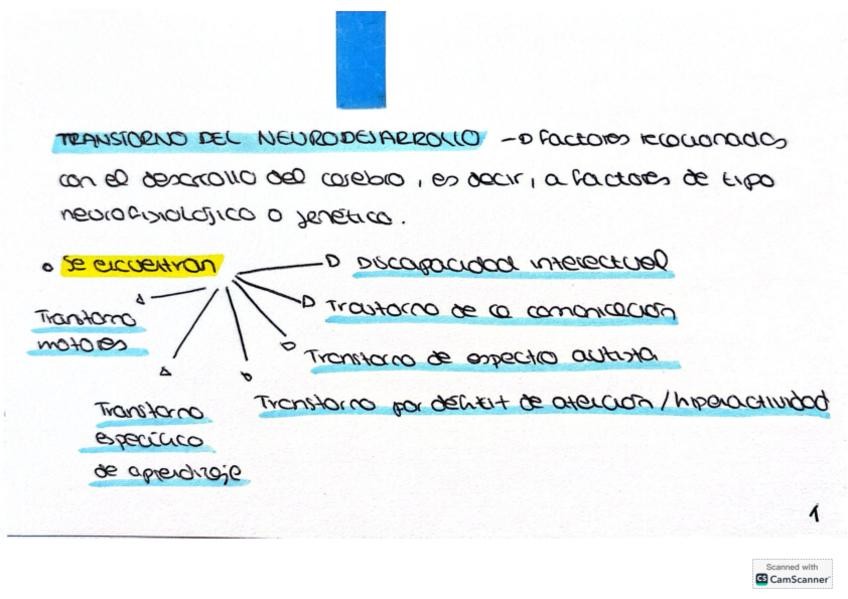 TRANSTORNO DEL NEURODESARROLLO → factores relacionados
con el desarrollo del cerebro, es decir, a factores de tipo
neurofisiológico o genético.
• Se encuentran
→ Discapacidad intelectual
→ Trastorno de la comunicación
→ Transtorno de espectro autista
→ Transtorno por déficit de atención / hiperactividad
Transtorno
específico
de aprendizaje
Transtorno
motores
1
Scanned with
CS CamScanner